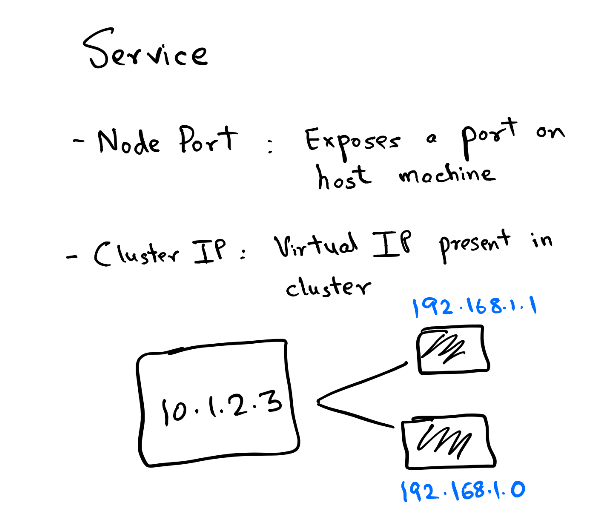 Service
- Node Port : Exposes a port on
host machine
- Cluster IP : Virtual IP present in
cluster
192.168.1.1
10.1.2.3
192.168.1.0